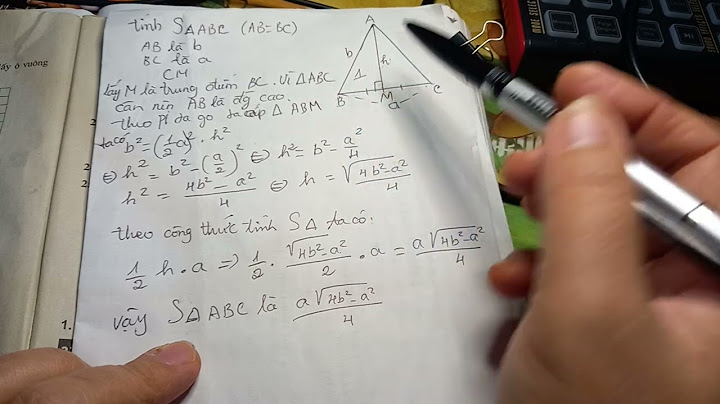 tính S△ABC (AB=BC)
AB là b
BC là a
CM
lấy M là trung điểm BC. Vì △ABC
cân nên AB là đg cao.
theo Pi ta go ta cóp △ ABM
ta có b² = (1/2 a)² . h²
⇔ h² = b² - (a/2)² ⇔ h² = b² - a²/4
h² = (4b² - a²)/4 ⇔ h = √((4b² - a²)/4)
theo công thức tính S△ ta có:
1/2 h . a ⇒ 1/2 . √(4b² - a²)/2 . a = a√(4b² - a²)/4
vậy S△ABC là a√(4b² - a²)/4
A
b
h
1
B
M
C
a
ấy ô vuông
2
2
1.